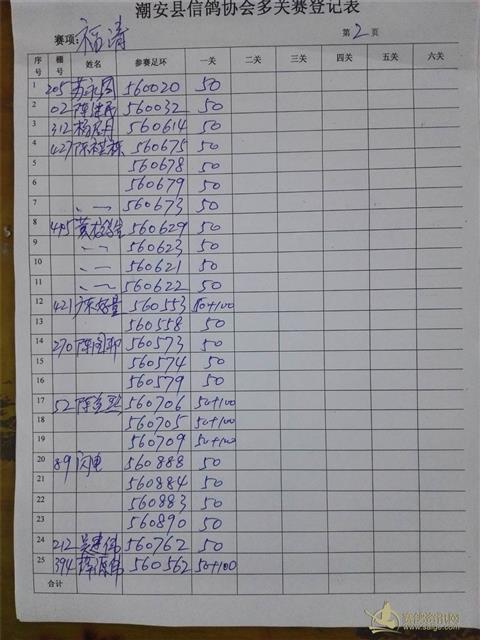 潮安县信鸽协会多关赛登记表
赛项: 福清 第2页
序号 棚号 姓名 参赛足环 一关 二关 三关 四关 五关 六关
1 205 苏永国 560020 50
2 02 560032 50
3 312 杨 560614 50
4 427 陈 560675 50
5 560678 50
6 560679 50
7 560673 50
8 495 黄 560629 50
9 560623 50
10 560621 50
11 560622 50
12 421 560553 50+100
13 560558 50
14 270 陈 560573 50
15 560574 50
16 560579 50
17 52 陈 560706 50+100
18 560705 50+100
19 560709 50+100
20 89 闪电 560888 50
21 560884 50
22 560883 50
23 560890 50
24 212 吴建伟 560762 50
25 394 560562 50+100
合计